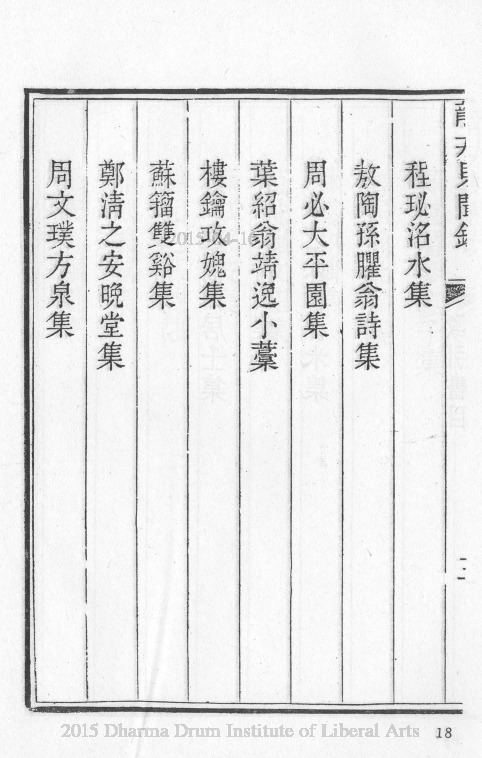 龍井見聞錄
程珌洺水集
敖陶孫臞翁詩集
周必大平園集
葉紹翁靖逸小藁
樓鑰攻媿集
蘇籀雙谿集
鄭清之安晚堂集
周文璞方泉集
2015 Dharma Drum Institute of Liberal Arts
18